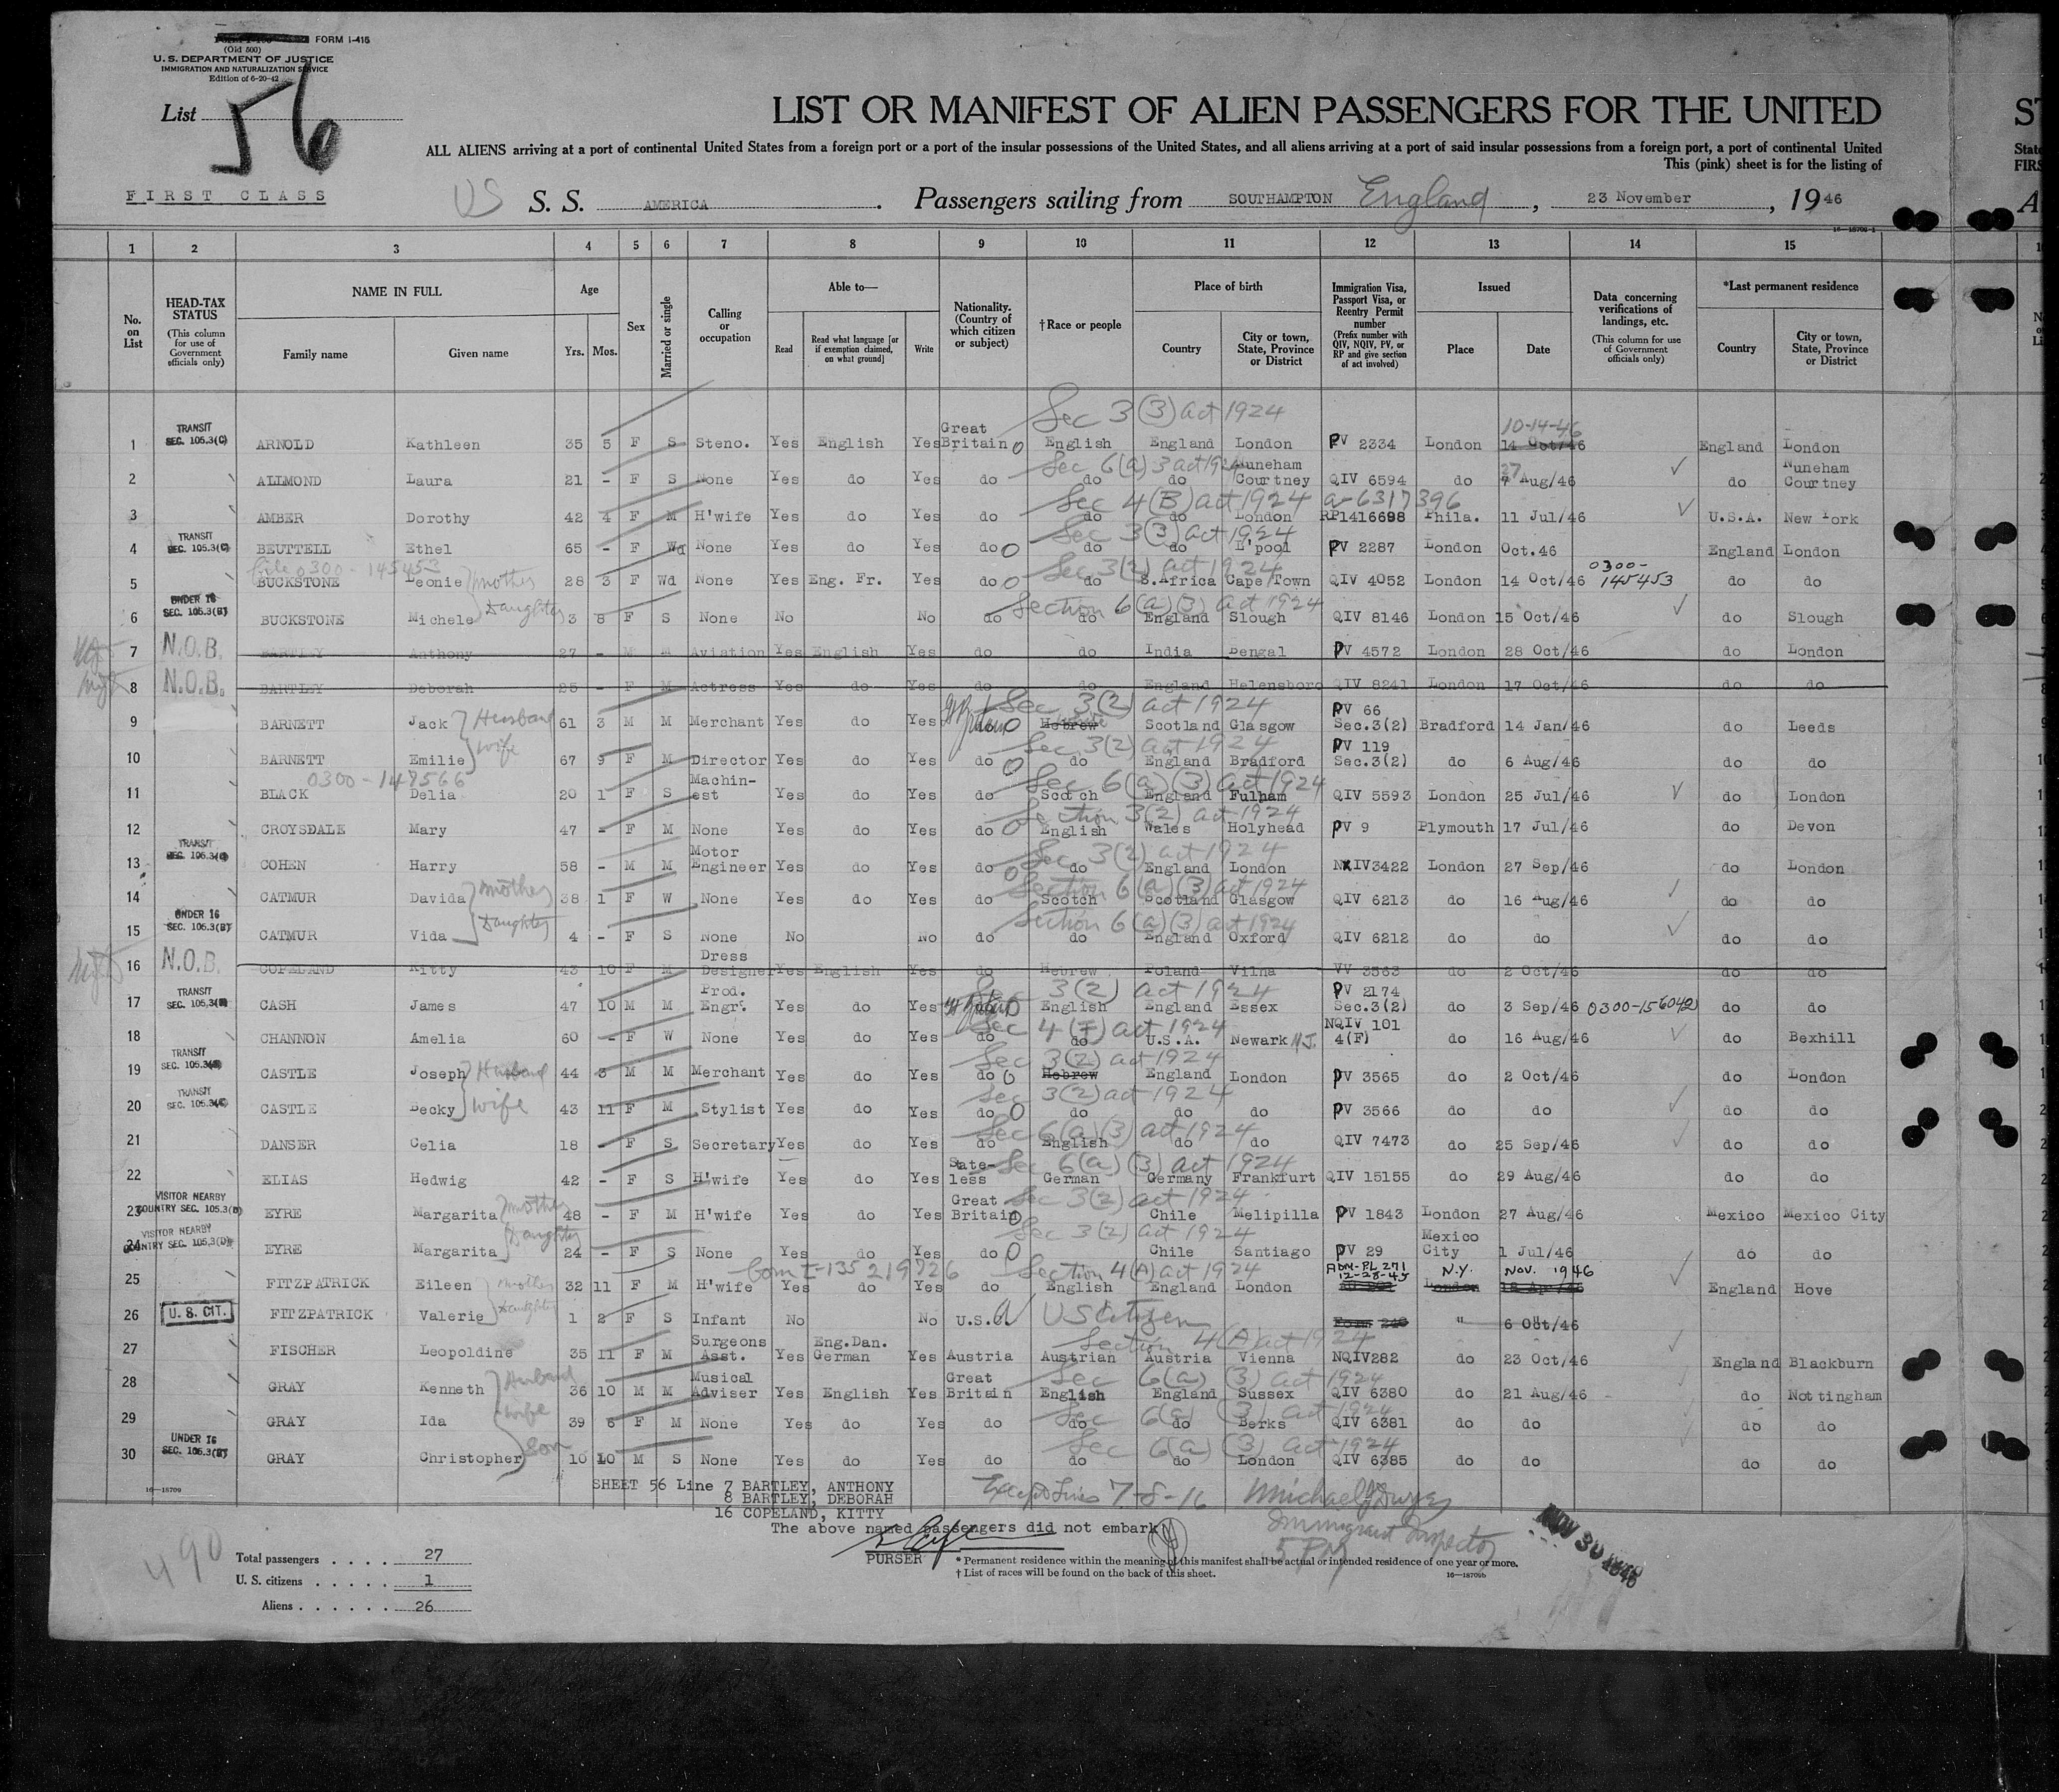 FORM I-415
(Old 500)
U. S. DEPARTMENT OF JUSTICE
IMMIGRATION AND NATURALIZATION SERVICE
Edition of 6-20-42
List 56
LIST OR MANIFEST OF ALIEN PASSENGERS FOR THE UNITED
ALL ALIENS arriving at a port of continental United States from a foreign port or a port of the insular possessions of the United States, and all aliens arriving at a port of said insular possessions from a foreign port, a port of continental United
This (pink) sheet is for the listing of
FIRST CLASS
US S. S. AMERICA. Passengers sailing from SOUTHAMPTON England, 23 November, 1946
16—18709-1
1 2 3 4 5 6 7 8 9 10 11 12 13 14 15
No. on List
HEAD-TAX STATUS (This column for use of Government officials only)
NAME IN FULL Family name Given name
Age Yrs. Mos.
Sex
Married or single
Calling or occupation
Able to— Read Read what language [or if exemption claimed, on what ground] Write
Nationality. (Country of which citizen or subject)
†Race or people
Place of birth Country City or town, State, Province or District
Immigration Visa, Passport Visa, or Reentry Permit number (Prefix number with QIV, NQIV, PV, or RP and give section of act involved)
Issued Place Date
Data concerning verifications of landings, etc. (This column for use of Government officials only)
*Last permanent residence Country City or town, State, Province or District
Sec 3(3) act 1924 10-14-46
1 TRANSIT SEC. 105.3(C) ARNOLD Kathleen 35 5 F S Steno. Yes English Yes Great Britain O English England London PV 2334 London 14 Oct/46 England London
Sec 6(a) 3 act 1924
2 ALLMOND Laura 21 - F S None Yes do Yes do do do Nuneham Courtney QIV 6594 do 27 Aug/46 do Nuneham Courtney
Sec 4(B) act 1924 a-6317396
3 AMBER Dorothy 42 4 F M H'wife Yes do Yes do do do London RP1416698 Phila. 11 Jul/46 U.S.A. New York
Sec 3(3) act 1924
4 TRANSIT SEC. 105.3(C) BEUTTELL Ethel 65 - F Wd None Yes do Yes do O do do L'pool PV 2287 London Oct.46 England London
file 0300-145453 Sec 3(2) act 1924
5 BUCKSTONE Leonie mother 28 3 F Wd None Yes Eng. Fr. Yes do O do S.Africa Cape Town QIV 4052 London 14 Oct/46 0300-145453 do do
Section 6(a)(3) act 1924
6 UNDER 16 SEC. 105.3(B) BUCKSTONE Michele Daughter 3 8 F S None No No do do England Slough QIV 8146 London 15 Oct/46 do Slough
7 N.O.B. BARTLEY Anthony 27 - M M Aviation Yes English Yes do do India Bengal PV 4572 London 28 Oct/46 do London
8 N.O.B. BARTLEY Deborah 25 - F M Actress Yes do Yes do do England Helensboro QIV 8241 London 17 Oct/46 do do
Sec 3(2) act 1924
9 BARNETT Jack Husband 61 3 M M Merchant Yes do Yes O Hebrew Scotland Glasgow PV 66 Sec.3(2) Bradford 14 Jan/46 do Leeds
Sec 3(2) act 1924
10 BARNETT Emilie wife 67 9 F M Director Yes do Yes do O do England Bradford PV 119 Sec.3(2) do 6 Aug/46 do do
0300-147566 Sec 6(a)(3) act 1924
11 BLACK Delia 20 1 F S Machin-est Yes do Yes do Scotch England Fulham QIV 5593 London 25 Jul/46 do London
Section 3(2) act 1924
12 CROYSDALE Mary 47 - F M None Yes do Yes do O English Wales Holyhead PV 9 Plymouth 17 Jul/46 do Devon
Sec 3(2) act 1924
13 TRANSIT SEC. 105.3(C) COHEN Harry 58 - M M Motor Engineer Yes do Yes do O do England London NXIV3422 London 27 Sep/46 do London
Section 6(a)(3) act 1924
14 CATMUR Davida mother 38 1 F W None Yes do Yes do Scotch Scotland Glasgow QIV 6213 do 16 Aug/46 do do
Section 6(a)(3) act 1924
15 UNDER 16 SEC. 105.3(B) CATMUR Vida Daughter 4 - F S None No No do do England Oxford QIV 6212 do do do do
16 N.O.B. COPELAND Kitty 43 10 F M Dress Designer Yes English Yes do Hebrew Poland Vilna VV 3563 do 2 Oct/46 do do
Sec 3(2) act 1924
17 TRANSIT SEC. 105.3 CASH James 47 10 M M Prod. Engr. Yes do Yes O English England Essex PV 2174 Sec.3(2) do 3 Sep/46 do do
Sec 4(F) act 1924
18 CHANNON Amelia 60 - F W None Yes do Yes do do U.S.A. Newark N.J. NQIV 101 4(F) do 16 Aug/46 do Bexhill
Sec 3(2) act 1924
19 TRANSIT SEC. 105.3 CASTLE Joseph Husband 44 3 M M Merchant Yes do Yes do O Hebrew England London PV 3565 do 2 Oct/46 do London
Sec 3(2) act 1924
20 TRANSIT SEC. 105.3 CASTLE Becky wife 43 11 F M Stylist Yes do Yes do O do do do PV 3566 do do do do
Sec 6(a)(3) act 1924
21 DANSER Celia 18 - F S Secretary Yes do Yes do English do do QIV 7473 do 25 Sep/46 do do
Sec 6(a)(3) act 1924
22 ELIAS Hedwig 42 - F S H'wife Yes do Yes State-less German Germany Frankfurt QIV 15155 do 29 Aug/46 do do
Sec 3(2) act 1924
23 VISITOR NEARBY COUNTRY SEC. 105.3(D) EYRE Margarita mother 48 - F M H'wife Yes do Yes Great Britain O Chile Melipilla PV 1843 London 27 Aug/46 Mexico Mexico City
Sec 3(2) act 1924
24 VISITOR NEARBY COUNTRY SEC. 105.3(D) EYRE Margarita Daughter 24 - F S None Yes do Yes do O Chile Santiago PV 29 Mexico City 1 Jul/46 do do
Section 4(A) act 1924
25 FITZPATRICK Eileen mother 32 11 F M H'wife Yes do Yes do English England London ADM-PL 271 12-28-45 N.Y. NOV. 1946 London 18 Apr/46 England Hove
26 U. S. CIT. FITZPATRICK Valerie Daughter 1 2 F S Infant No No U.S.A US Citizen Form 240 " 6 Oct/46
Section 4(A) act 1924
27 FISCHER Leopoldine 35 11 F M Surgeons Asst. Yes Eng.Dan. German Yes Austria Austrian Austria Vienna NQIV282 do 23 Oct/46 England Blackburn
Sec 6(a)(3) act 1924
28 GRAY Kenneth Husband 36 10 M M Musical Adviser Yes English Yes Great Britain English England Sussex QIV 6380 do 21 Aug/46 do Nottingham
Sec 6(a)(3) act 1924
29 GRAY Ida wife 39 6 F M None Yes do Yes do do do Berks QIV 6381 do do do do
Sec 6(a)(3) act 1924
30 UNDER 16 SEC. 105.3(B) GRAY Christopher son 10 10 M S None Yes do Yes do do do London QIV 6385 do do do do
16—18709
SHEET 56 Line 7 BARTLEY, ANTHONY
8 BARTLEY, DEBORAH
16 COPELAND, KITTY
The above named passengers did not embark
PURSER
Except Lines 7-8-16
Immigrant Inspector
5 PM
NOV 30 1946
490
Total passengers . . . . 27
U. S. citizens . . . . . 1
Aliens . . . . . . 26
* Permanent residence within the meaning of this manifest shall be actual or intended residence of one year or more.
† List of races will be found on the back of this sheet.
16—18709b